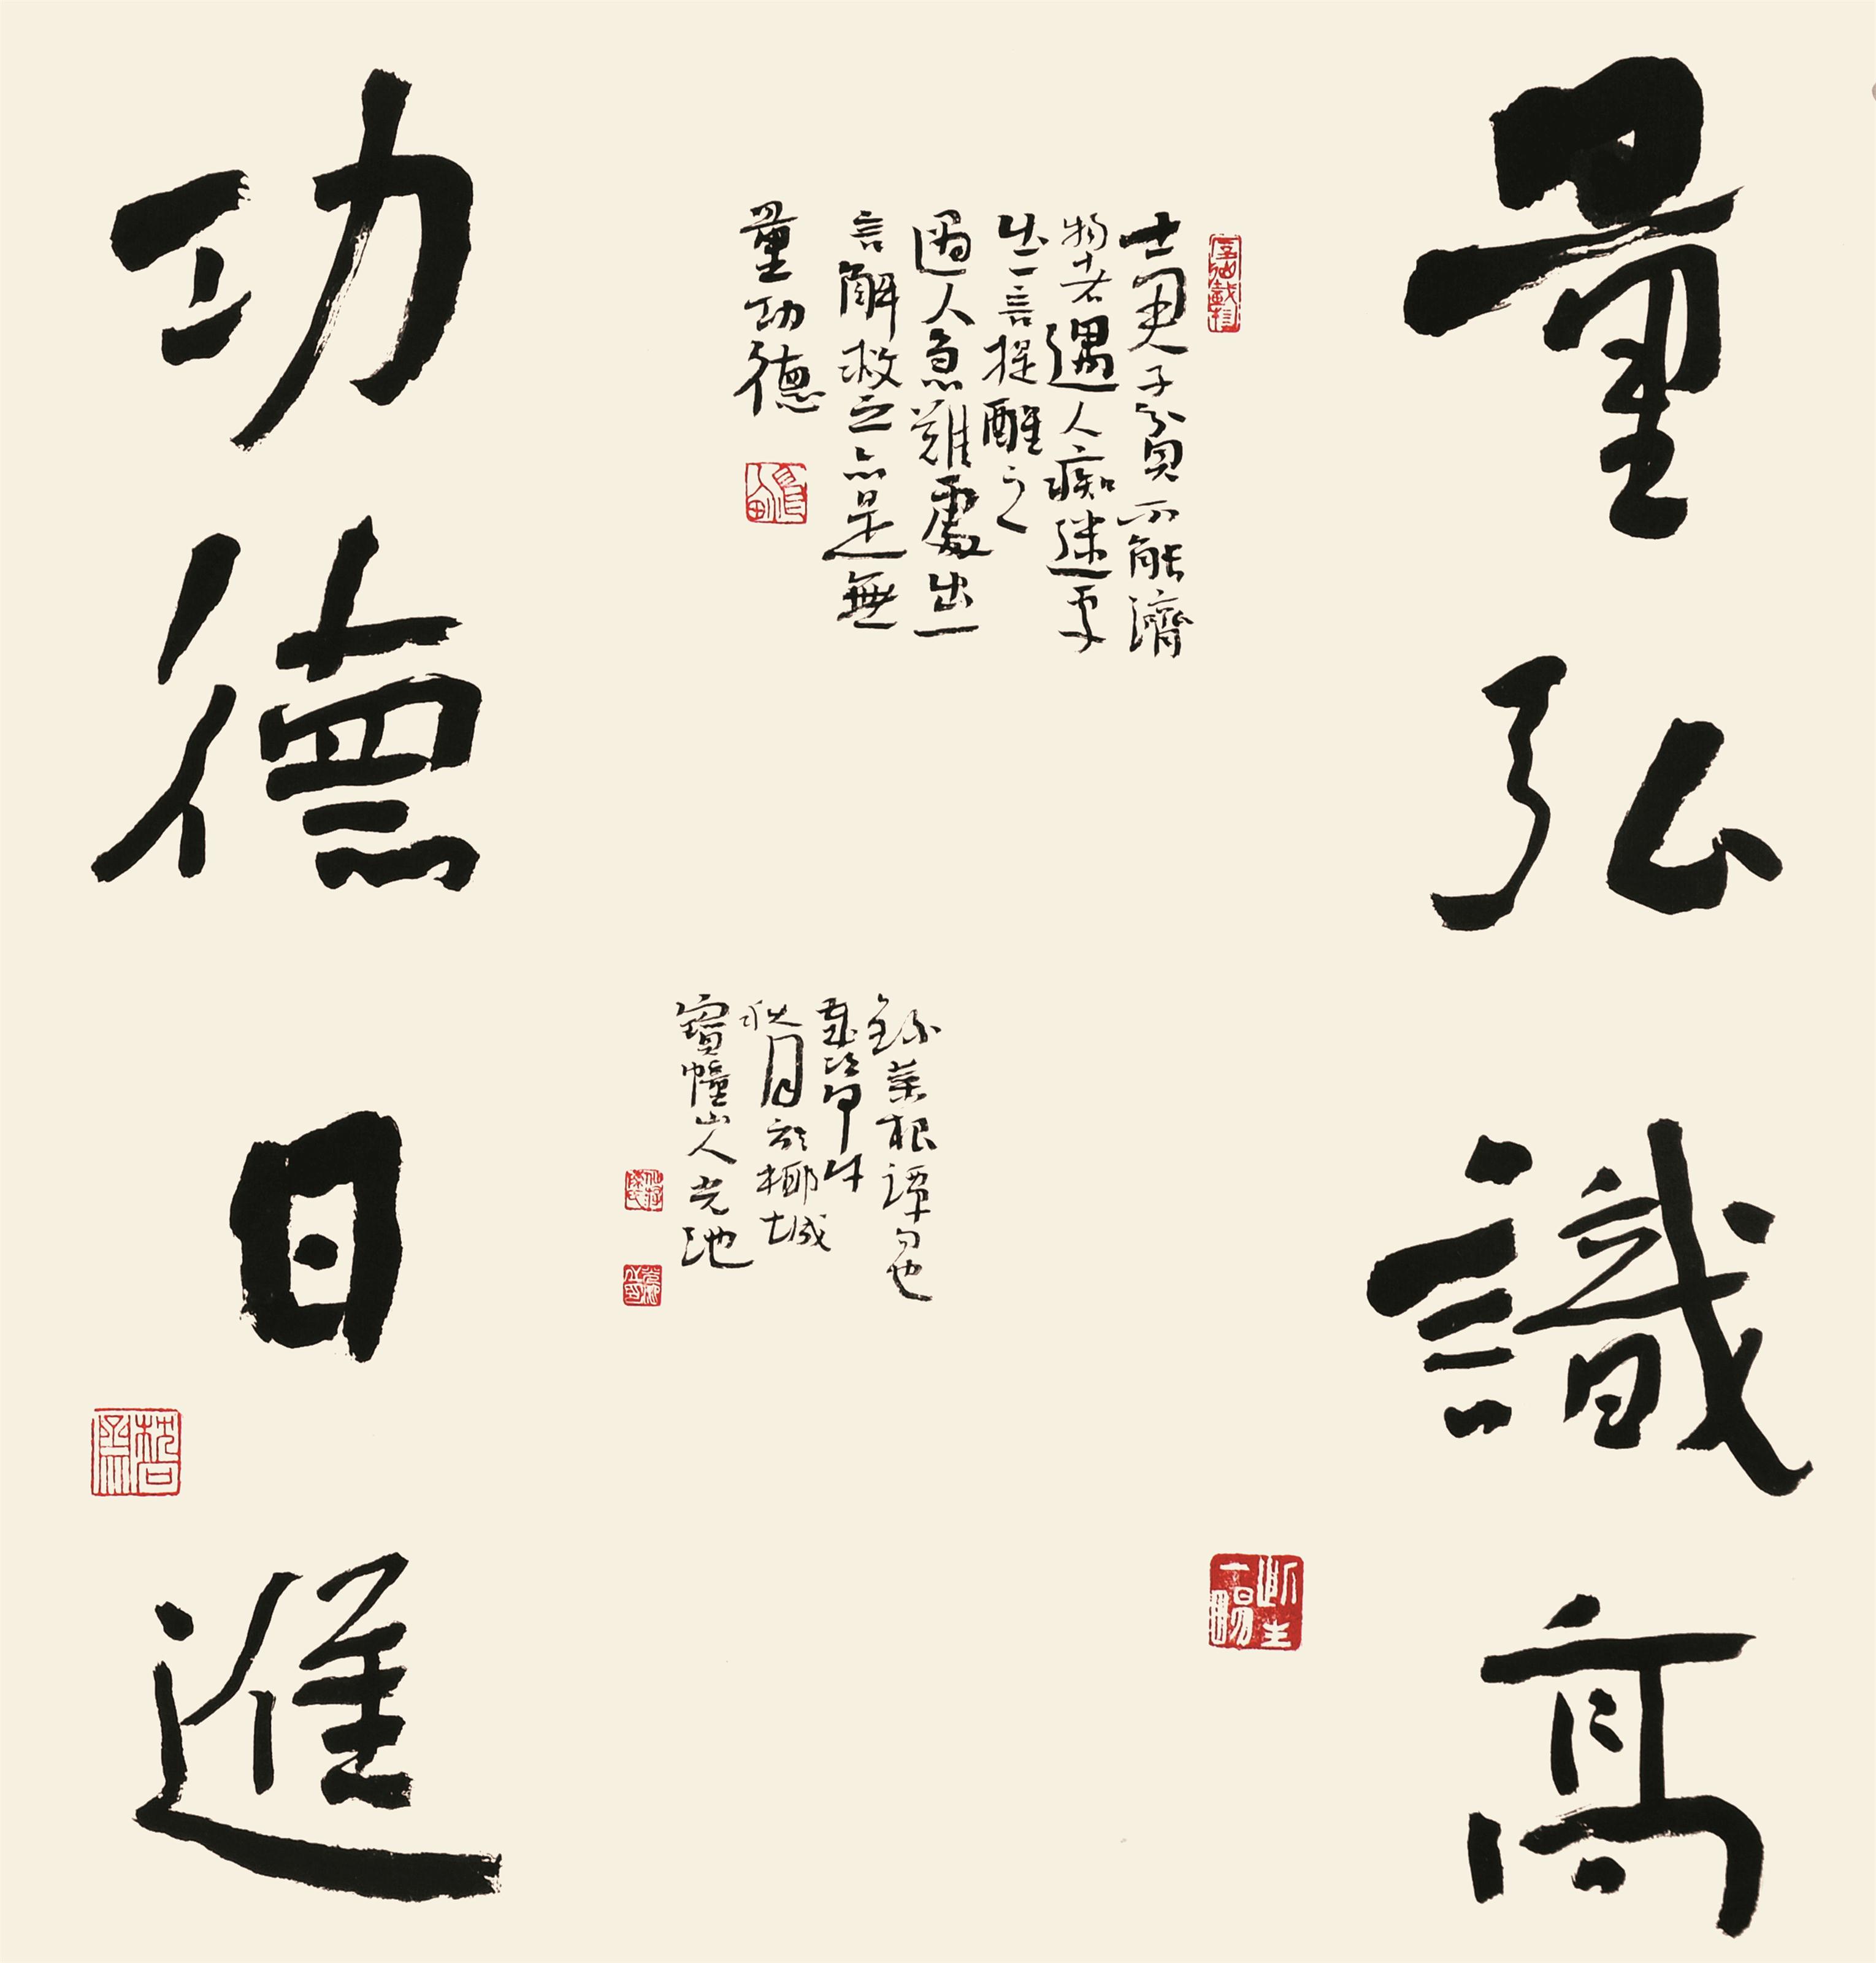 量弘識高
士君子貧不能濟
物者遇人痴迷處
出一言提醒之
遇人急難處出一
言解救之亦是無
量功德
錄菜根譚句也
秋月於椰城
寶幢山人光池
功德日進